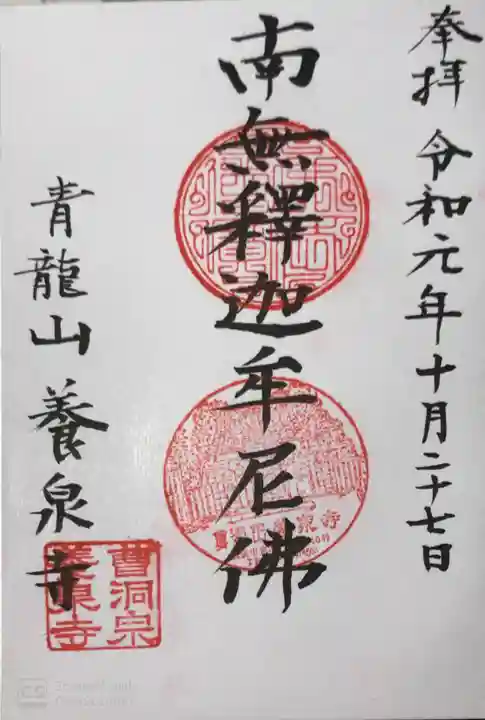 奉拝 令和元年十月二十七日
南無釋迦牟尼佛
青龍山 養泉寺
曹洞宗
養泉寺
CS